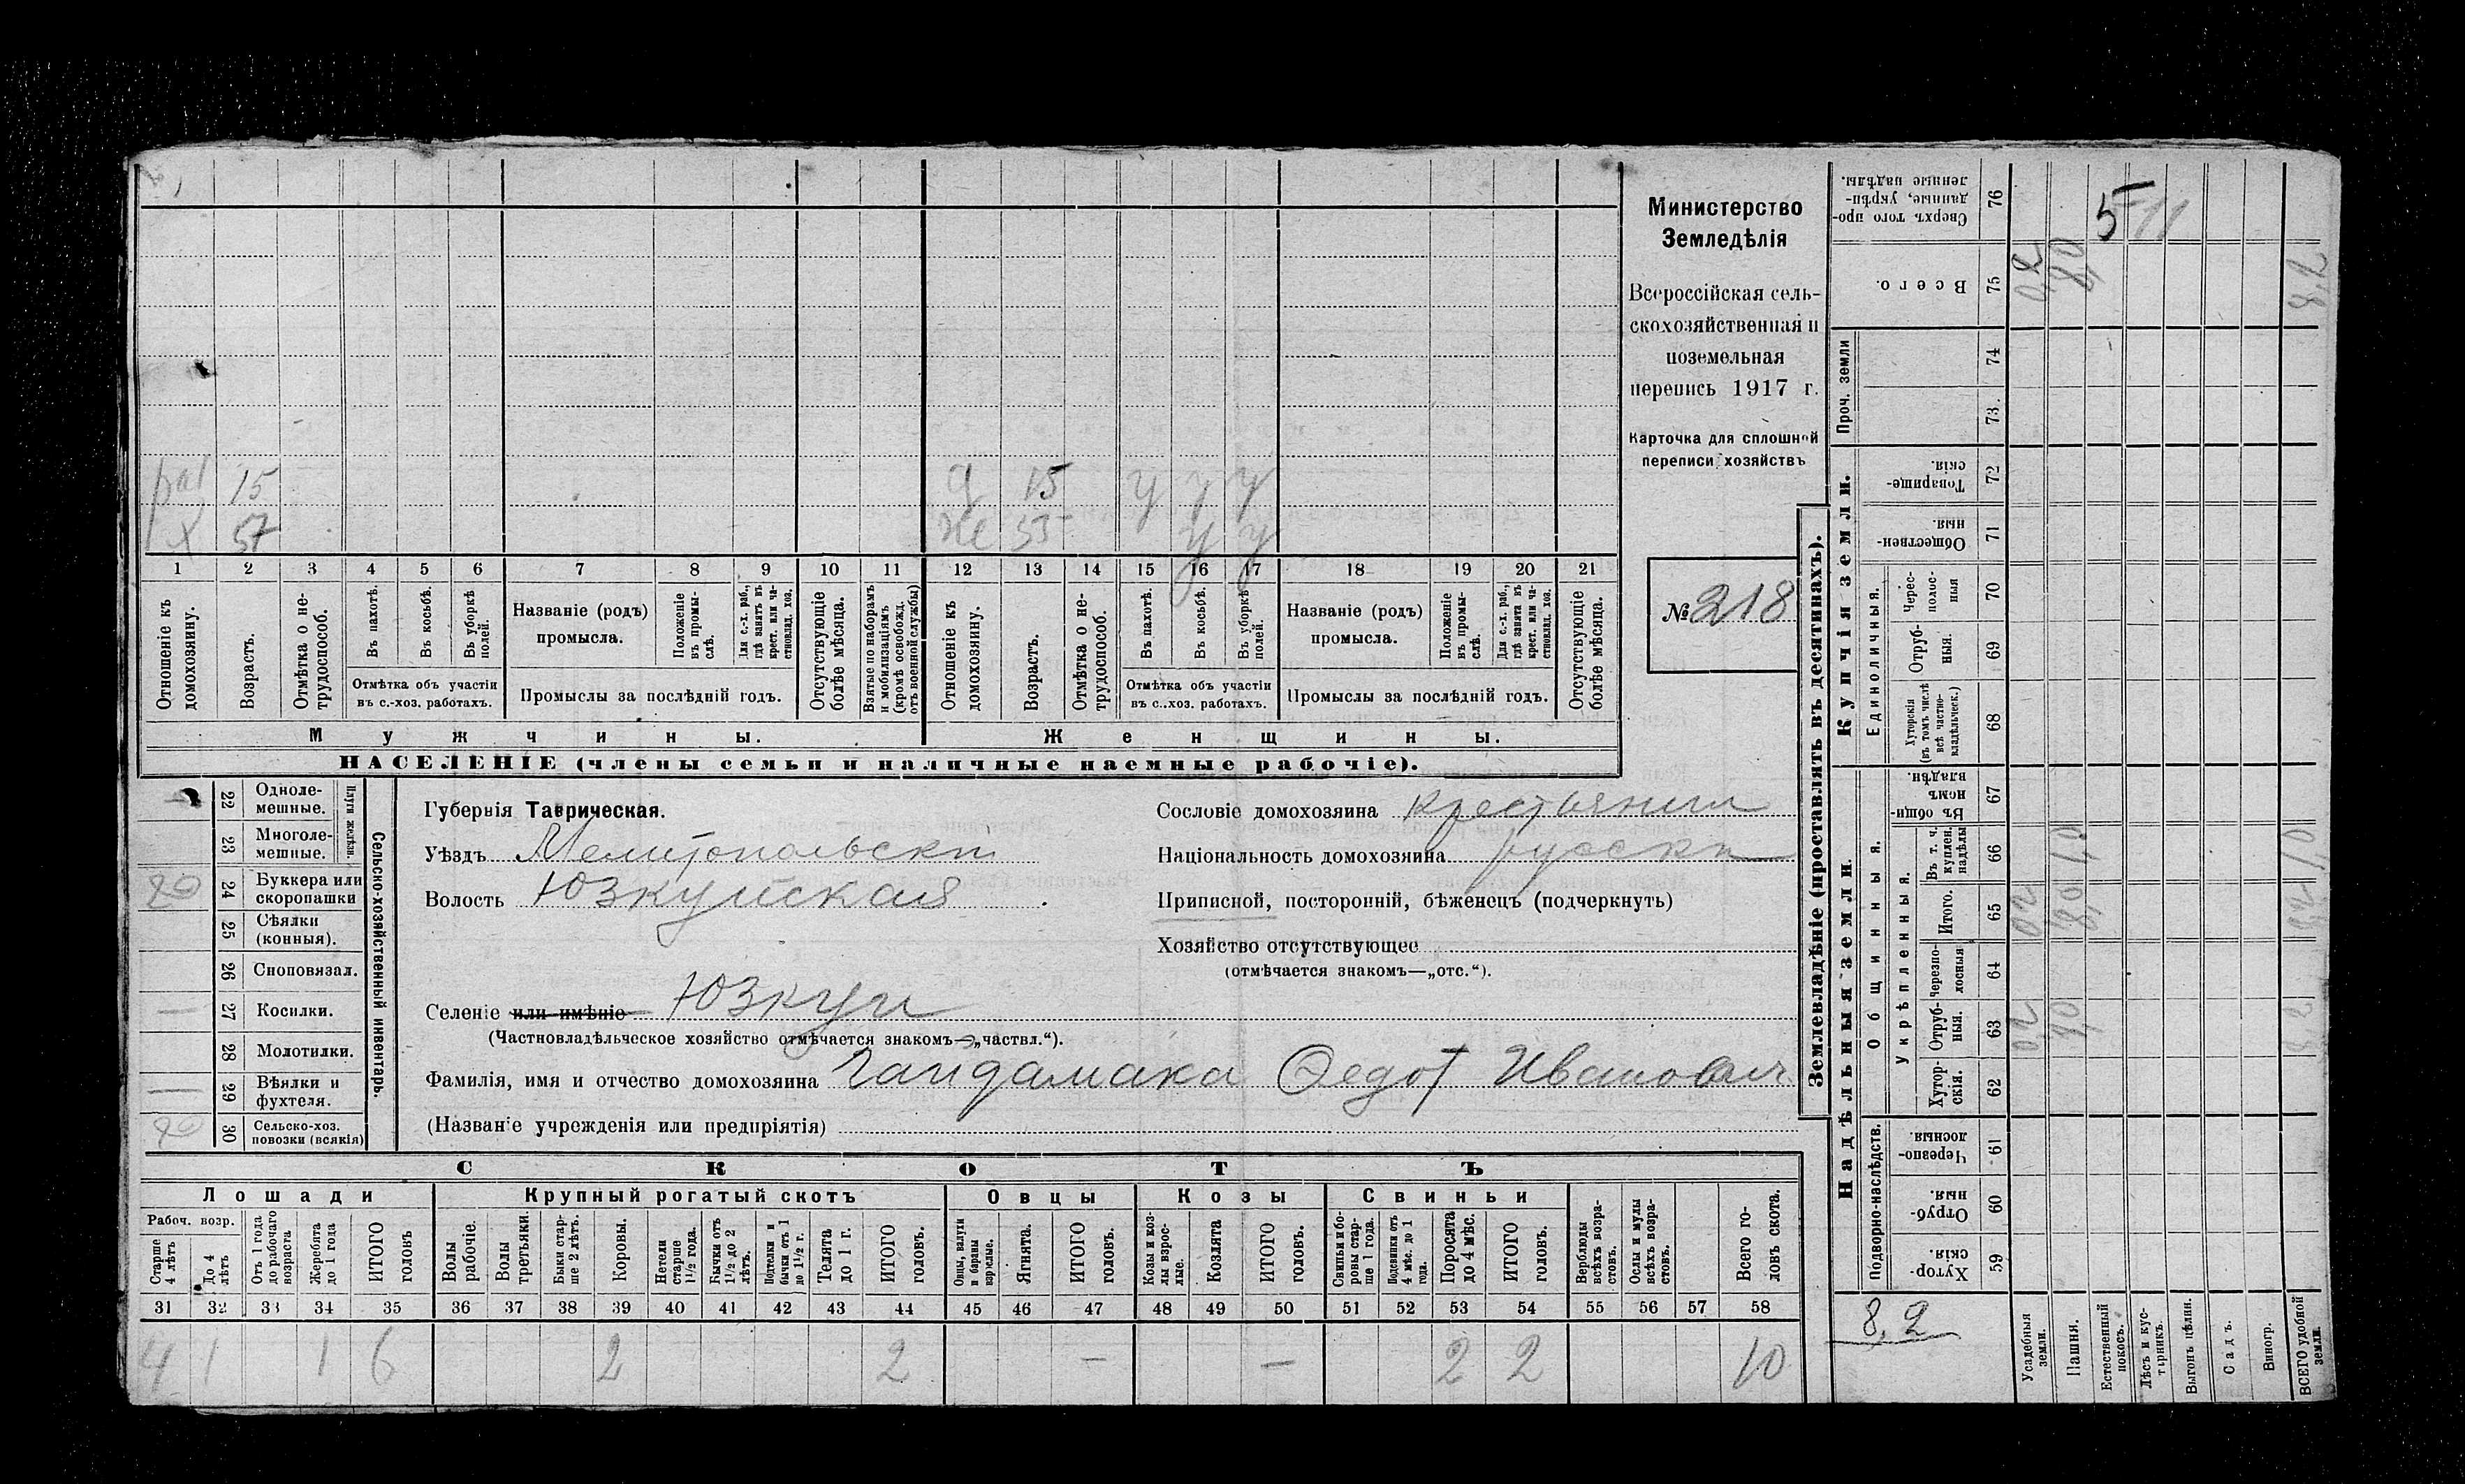 Министерство
Земледѣлія
Всероссійская сель-
скохозяйственная и
поземельная
перепись 1917 г.
Карточка для сплошной
переписи хозяйствъ
№ 218
15
15 у у у
X 57
Же 55 у у
1 2 3 4 5 6 7 8 9 10 11 12 13 14 15 16 17 18 19 20 21
Отношеніе къ домохозяину.
Возрастъ.
Отмѣтка о не-трудоспособ.
Въ пахотѣ.
Въ косьбѣ.
Въ уборкѣ полей.
Отмѣтка объ участіи въ с.-хоз. работахъ.
Названіе (родъ) промысла.
Положеніе въ промы-слѣ.
Для с.-х. раб., гдѣ занятъ въ крест. или ча-стновлад. хоз.
Промыслы за послѣдній годъ.
Отсутствующіе болѣе мѣсяца.
Взятые по наборамъ и мобилизаціямъ (кромѣ освобожд. отъ военной службы)
Отношеніе къ домохозяину.
Возрастъ.
Отмѣтка о не-трудоспособ.
Въ пахотѣ.
Въ косьбѣ.
Въ уборкѣ полей.
Отмѣтка объ участіи въ с.-хоз. работахъ.
Названіе (родъ) промысла.
Положеніе въ промы-слѣ.
Для с.-х. раб., гдѣ занята въ крест. или ча-стновлад. хоз.
Промыслы за послѣдній годъ.
Отсутствующіе болѣе мѣсяца.
Мужчины.
Женщины.
НАСЕЛЕНІЕ (члены семьи и наличные наемные рабочіе).
Сельско-хозяйственный инвентарь.
Плуги желѣзн.
22 Однолемешные.
23 Многолемешные.
24 Буккера или скоропашки
25 Сѣялки (конныя).
26 Сноповязал.
27 Косилки.
28 Молотилки.
29 Вѣялки и фухтеля.
30 Сельско-хоз. повозки (всякія)
Губернія Таврическая.
Уѣздъ Мелитопольскій
Волость Юзкуйская
Селеніе или имѣніе Юзкуи
(Частновладѣльческое хозяйство отмѣчается знакомъ—„частвл.“).
Фамилія, имя и отчество домохозяина Гайдамака Федот Иванович
(Названіе учрежденія или предпріятія)
Сословіе домохозяина Крестьянин
Національность домохозяина русскій
Приписной, посторонній, бѣженецъ (подчеркнуть)
Хозяйство отсутствующее
(отмѣчается знакомъ—„отс.“).
СКОТЪ
Лошади
Крупный рогатый скотъ
Овцы
Козы
Свиньи
Рабоч. возр.
Старше 4 лѣтъ
До 4 лѣтъ
Отъ 1 года до рабочаго возраста
Жеребята до 1 года
ИТОГО головъ
Волы рабочіе.
Волы третьяки.
Быки стар-ше 2 лѣтъ.
Коровы.
Нетели старше 1½ года.
Бычки отъ 1½ до 2 лѣтъ.
Подтелки и бычки отъ 1 до 1½ г.
Телята до 1 г.
ИТОГО головъ.
Овцы, валухи и бараны взрослые.
Ягнята.
ИТОГО головъ.
Козы и коз-лы взрос-лые.
Козлята
ИТОГО головъ.
Свиньи и бо-ровы стар-ше 1 года.
Подсвинки отъ 4 мѣс. до 1 года.
Поросята до 4 мѣс.
ИТОГО головъ.
Верблюды всѣхъ возра-стовъ.
Ослы и мулы всѣхъ возра-стовъ.
Всего го-ловъ скота.
31 32 33 34 35 36 37 38 39 40 41 42 43 44 45 46 47 48 49 50 51 52 53 54 55 56 57 58
4 1 1 6 2 2 — — 2 2 10
Землевладѣніе (проставлять въ десятинахъ).
Купчія земли.
Надѣльныя земли.
Проч. земли
Единоличныя.
Общинныя.
Укрѣпленныя.
Подворно-наслѣдств.
76 Сверхъ того про-данные, укрѣп-ленные надѣлы.
75 Всего.
74
73
72 Товарище-скія.
71 Обществен-ныя
70 Черес-полос-ныя
69 Отруб-ныя.
68 Хуторскія (въ томъ числѣ всѣ частно-владѣльческ.)
67 Въ общин-номъ владѣн.
66 Въ т. ч. куплен. надѣлы
65 Итого.
64 Черезпо-лосныя
63 Отруб-ныя.
62 Хутор-скія.
61 Черезпо-лосныя
60 Отруб-ныя.
59 Хутор-скія.
Усадебныя земли.
Пашня.
Естественный покосъ.
Лѣсъ и кус-тарникъ.
Выгонъ цѣлин.
Садъ.
Виногр.
ВСЕГО удобной земли.
0,2 8,0 8,2
1,0 1,0
0,2 8,0 8,2
8,2